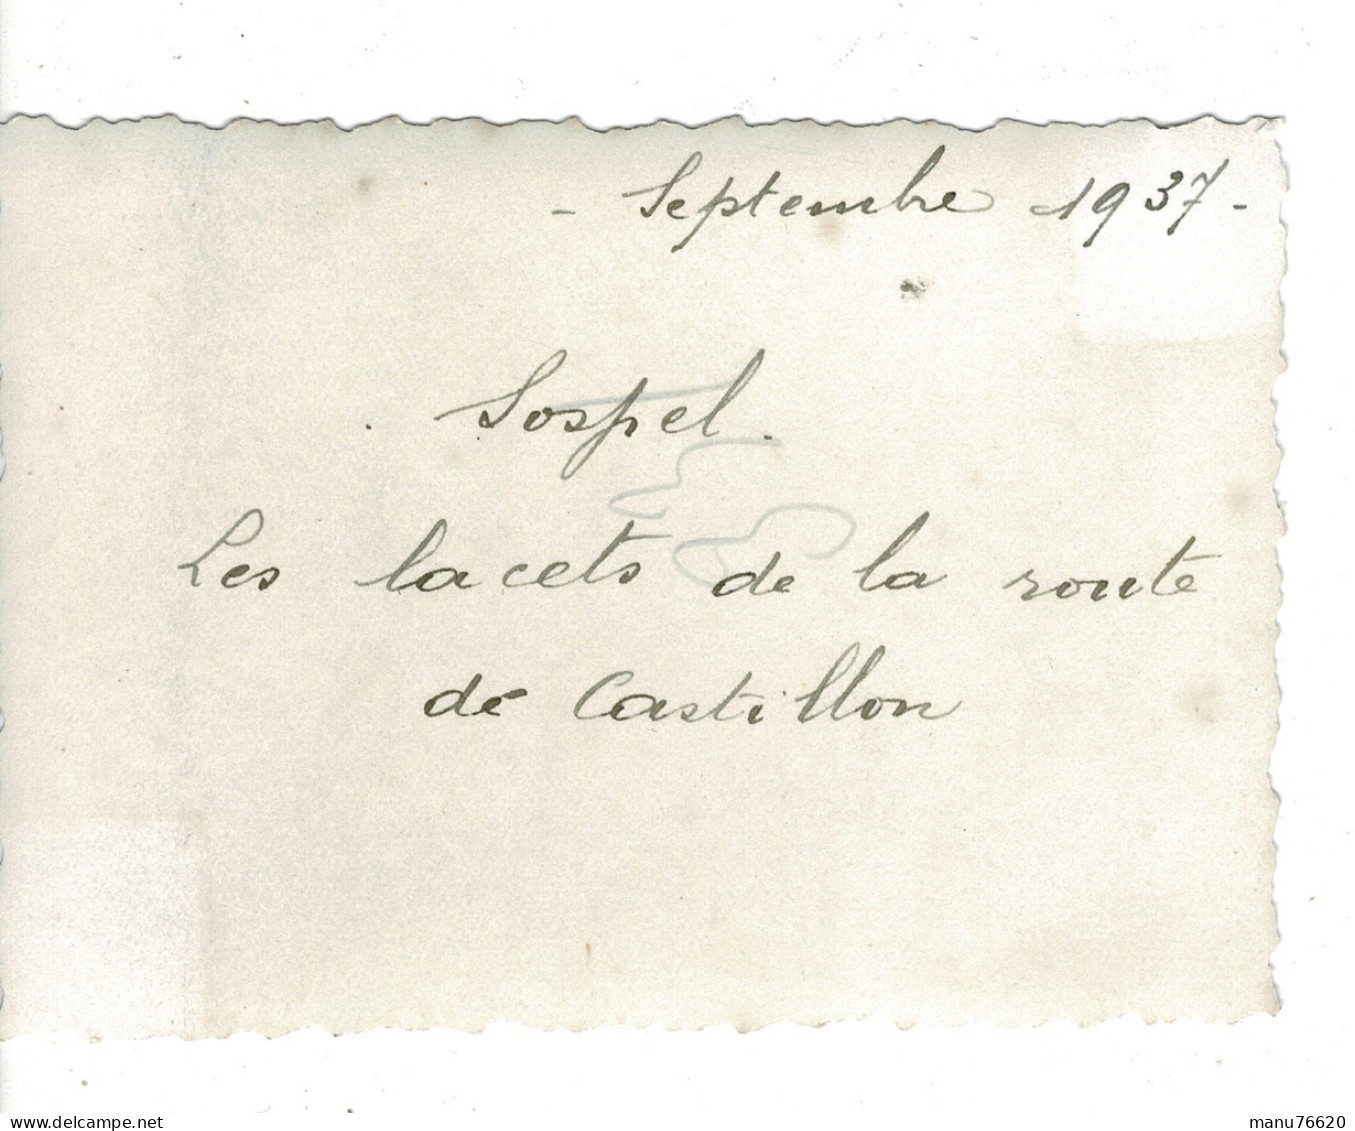 - Septembre 1937 -
Sospel.
Les lacets de la route
de Castillon
delcampe.net
manu76620